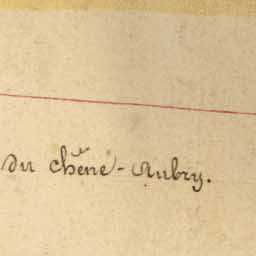 Du chêne-Aubry.